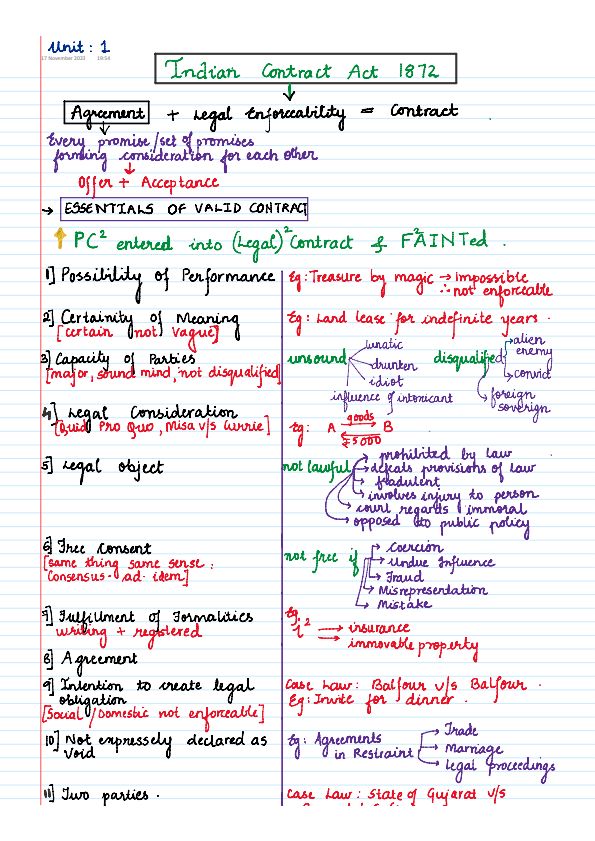 Unit : 1
17 November 2020 19:54
Indian Contract Act 1872
Agreement + Legal Enforceability = Contract
Every promise/set of promises
forming consideration for each other
Offer + Acceptance
→ ESSENTIALS OF VALID CONTRACT
PC² entered into (Legal)² Contract & F²AINTed .
1] Possibility of Performance Eg: Treasure by magic → Impossible
∴ not enforceable
2] Certainity of Meaning Eg: Land lease for indefinite years.
[certain not vague]
3] Capacity of Parties
[major, sound mind, not disqualified]
unsound lunatic
drunken
idiot
influence of intonicant
disqualified alien
enemy
convict
foreign
soverign
4] Legal Consideration
[Quid Pro Quo, Misa v/s Currie]
Eg: A goods B
₹5000
5] Legal Object
not lawful prohibited by law
defeats provisions of law
fradulent
involves injury to person
court regards immoral
opposed to public policy
6] Free Consent
[same thing same sense :
Consensus-ad-idem]
not free if Coercion
Undue Influence
Fraud
Misrepresentation
Mistake
7] Fulfillment of Formalities
writing + registered
Eg.
i² → insurance
→ immovable property
8] Agreement
9] Intention to create legal
obligation
[Social/Domestic not enforceable]
Case Law: Balfour v/s Balfour.
Eg: Invite for dinner.
10] Not expressely declared as
Void
Eg: Agreements
in Restraint
Trade
Marriage
Legal proceedings
11] Two parties . Case Law: State of Gujarat v/s